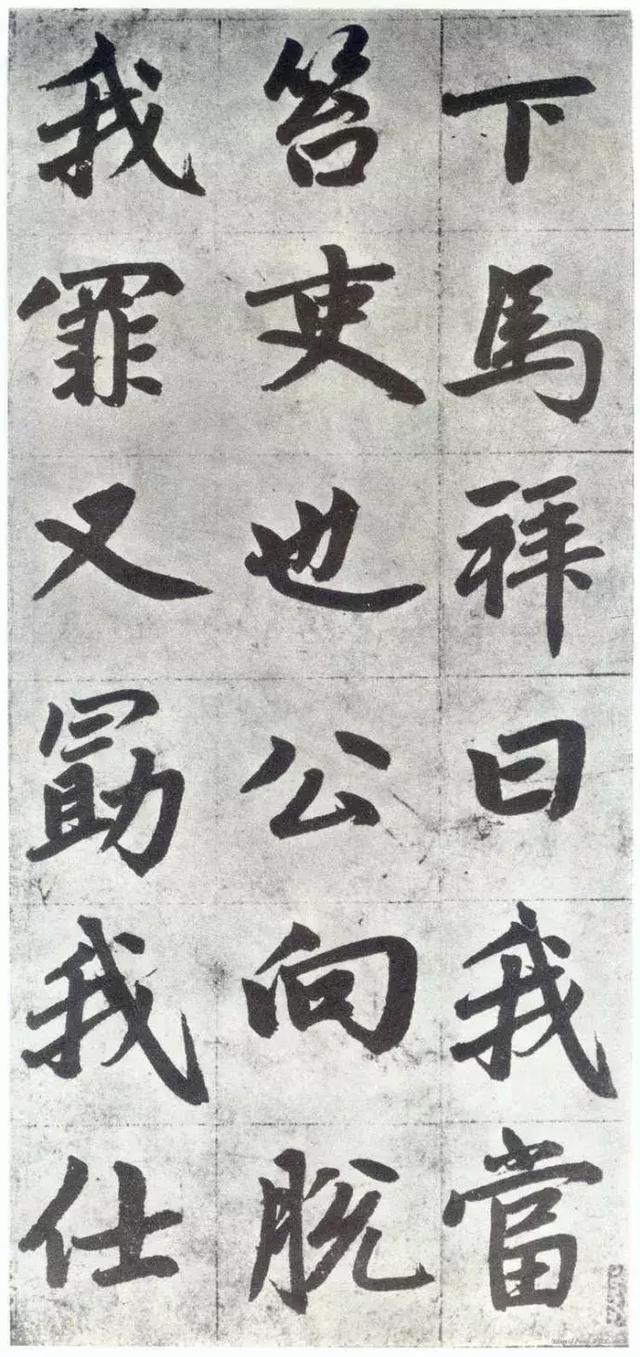 下馬拜曰我當
笞吏也公向脫
我罪又勗我仕